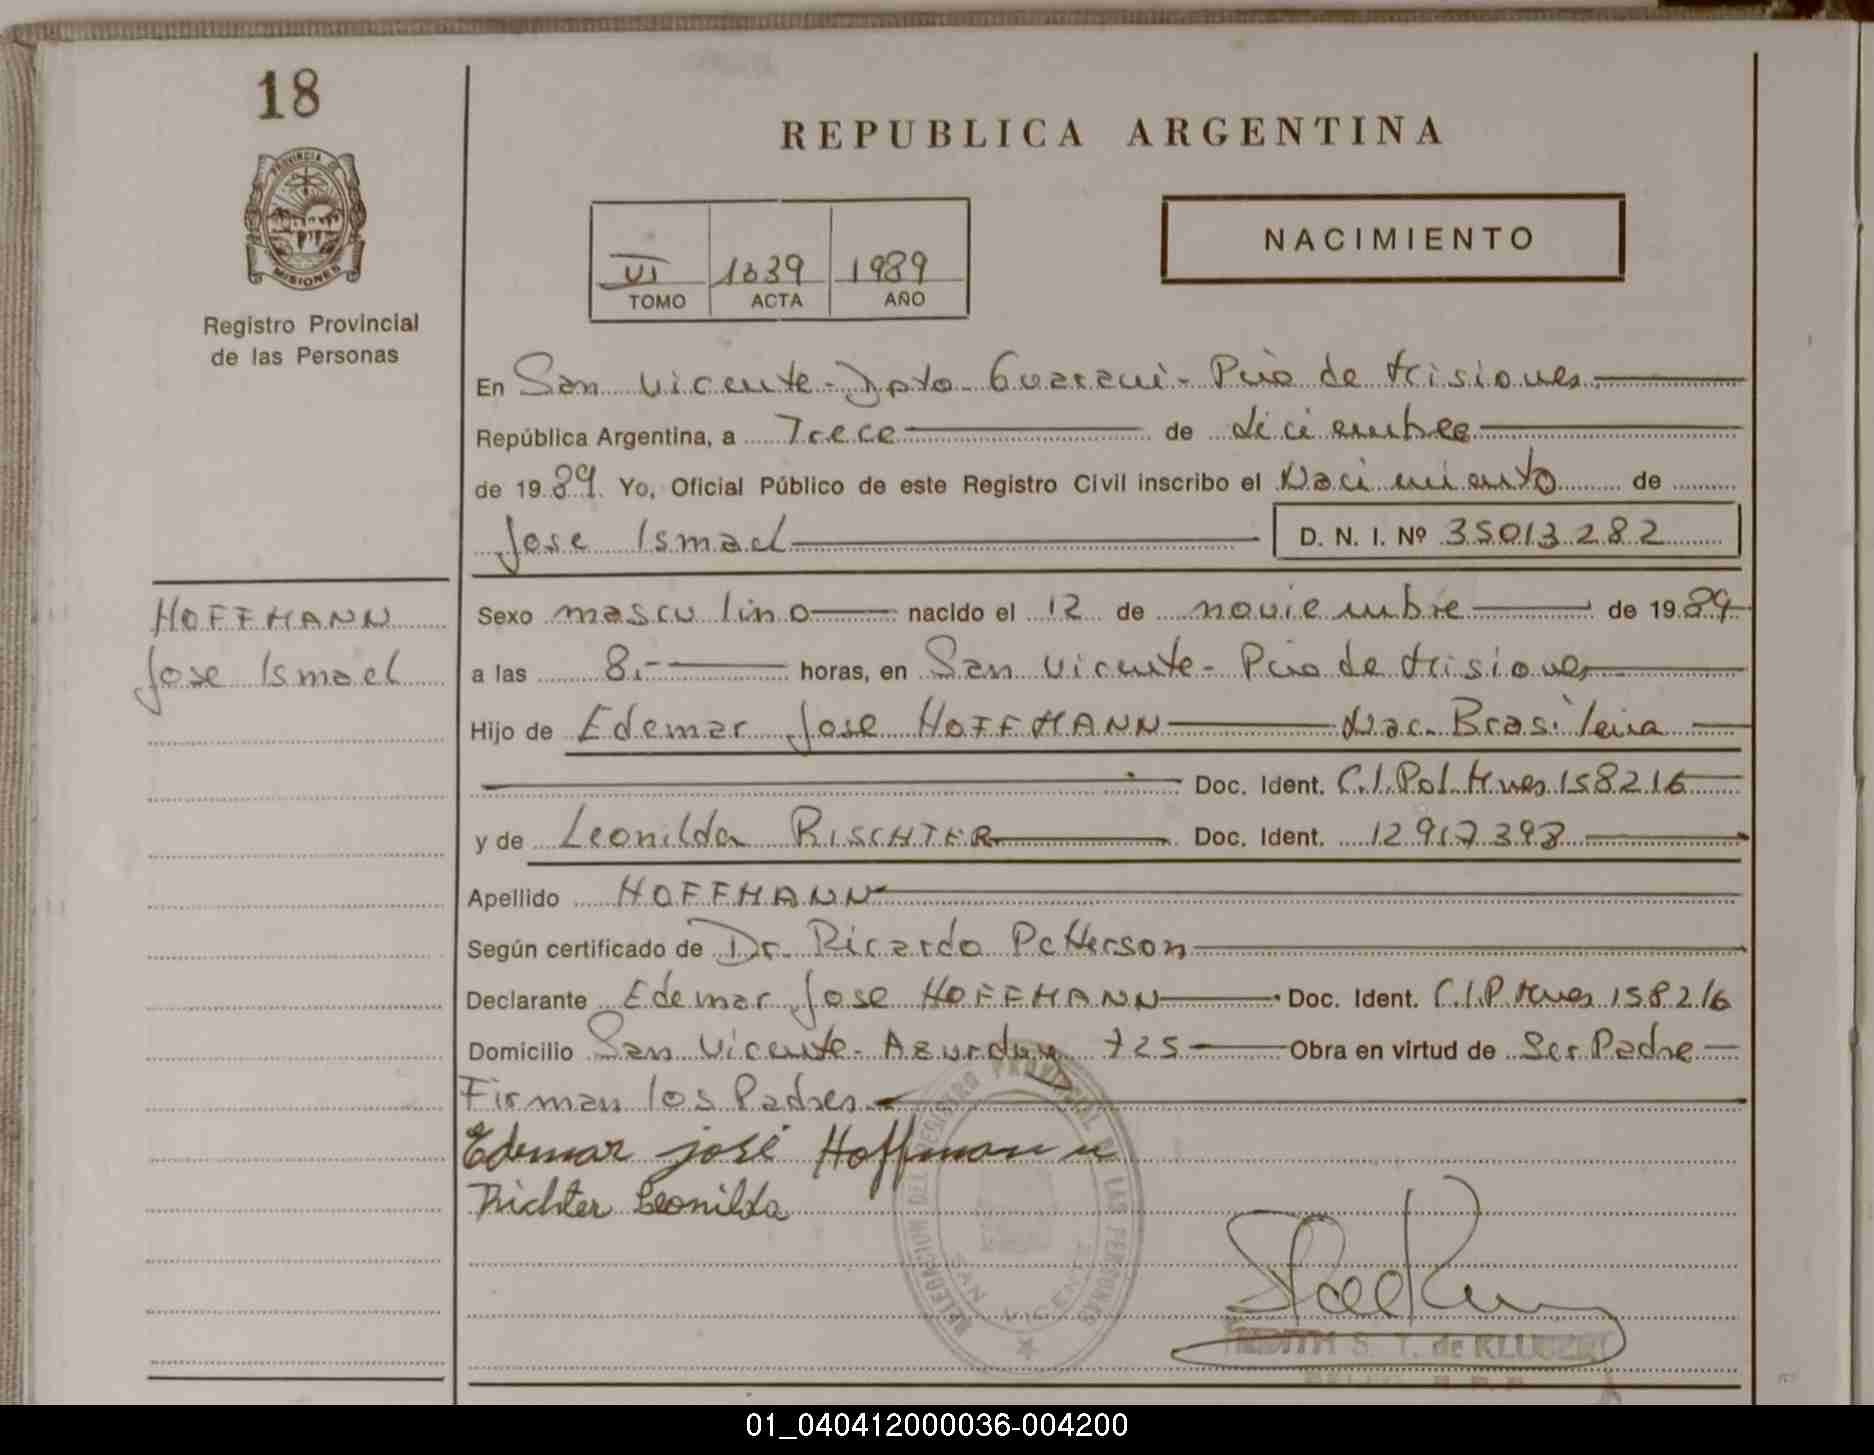 18
REPUBLICA ARGENTINA
PROVINCIA DE
MISIONES
Registro Provincial
de las Personas
NACIMIENTO
VI 1039 1989
TOMO ACTA AÑO
En San Vicente - Dpto Guarani - Pcia de Misiones
República Argentina, a Trece de diciembre
de 1989. Yo, Oficial Público de este Registro Civil inscribo el Nacimiento de
Jose Ismael D. N. I. Nº 35013282
HOFFMANN
Jose Ismael
Sexo masculino nacido el 12 de noviembre de 1989
a las 8.- horas, en San Vicente - Pcia de Misiones
Hijo de Edemar Jose HOFFMANN Nac. Brasileira
Doc. Ident. C.I. Pol. Mnes 158216
y de Leonilda RISCHTER Doc. Ident. 12917398
Apellido HOFFMANN
Según certificado de Dr. Ricardo Petterson
Declarante Edemar Jose HOFFMANN Doc. Ident. C.I.P. Mnes 158216
Domicilio San Vicente - Azurduy 725 Obra en virtud de Ser Padre
Firman los Padres
Edemar josé Hoffmann
Richter Leonilda
DELEGACION DEL REGISTRO PROVINCIAL DE LAS PERSONAS
SAN VICENTE
S. T. de
01_040412000036-004200